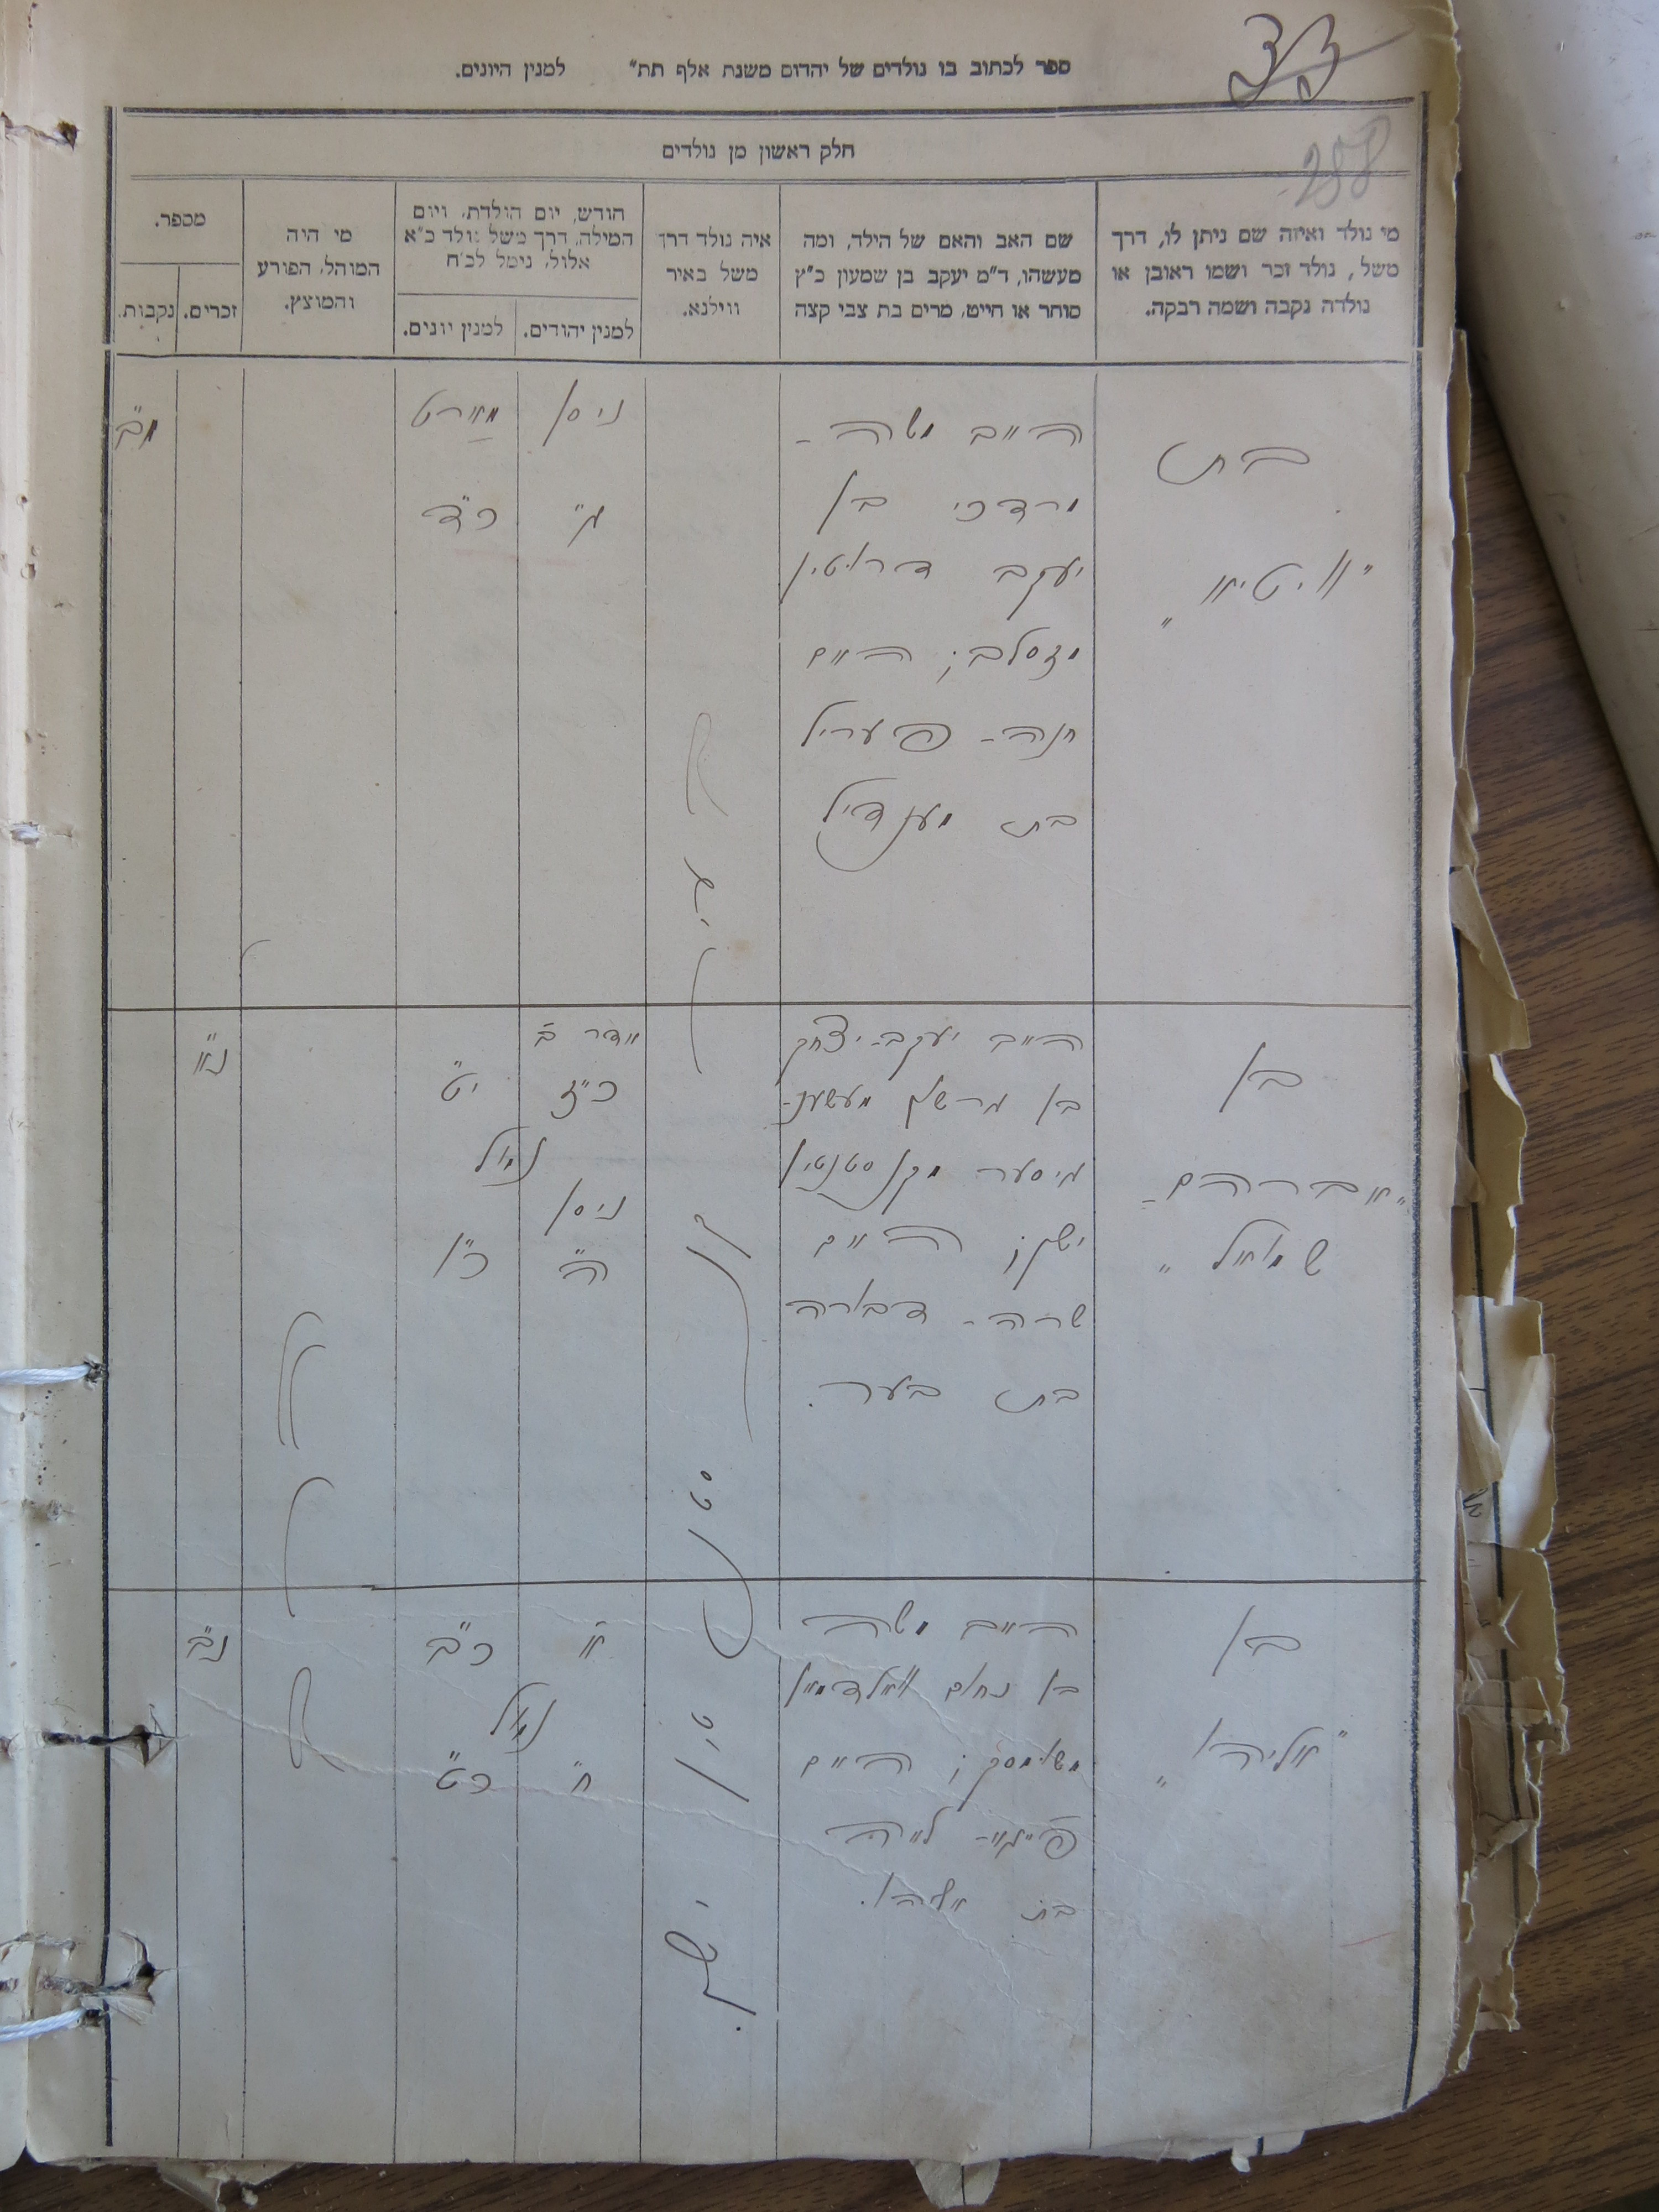 ספר לכתוב בו נולדים של יהדום משנת אלף תת״ למנין היונים.
חלק ראשון מן נולדים
מי נולד ואיזה שם ניתן לו, דרך
משל, נולד זכר ושמו ראובן או
נולדה נקבה ושמה רבקה.
שם האב והאם של הילד, ומה
מעשהו, ד״מ יעקב בן שמעון כ״ץ
סוחר או חייט, מרים בת צבי קצה
איה נולד דרך
משל באיר
ווילנא.
חודש, יום הולדת, ויום
המילה, דרך משל נולד כ״א
אלול, נימל לכ״ח
למנין יהודים.
למנין יונים.
מי היה
המוהל, הפורע
והמוצץ.
מספר.
זכרים.
נקבות.
בת
היים משה-
מרדכי בן
יעקב
היים
חנה-
בת מענדיל
ניסן
מארט
כ״ד
מ״ב
בן
״אברהם-
שמואל״
היים יעקב-יצחק
בן
מקנסטנטין
ישן; היים
שרה-דבורה
בת בער.
אדר ב׳
כ״ז
י״ט
נימול
ניסן
ה״
כ״ו
נ״א
בן
״אליהו״
היים משה
בן נחום וואלדמאן
היים
לאה
בת אליהו.
א״
כ״ב
נימול
ח״
כ״ט
נ״ב
קנ
סטנ
טין
ישן.